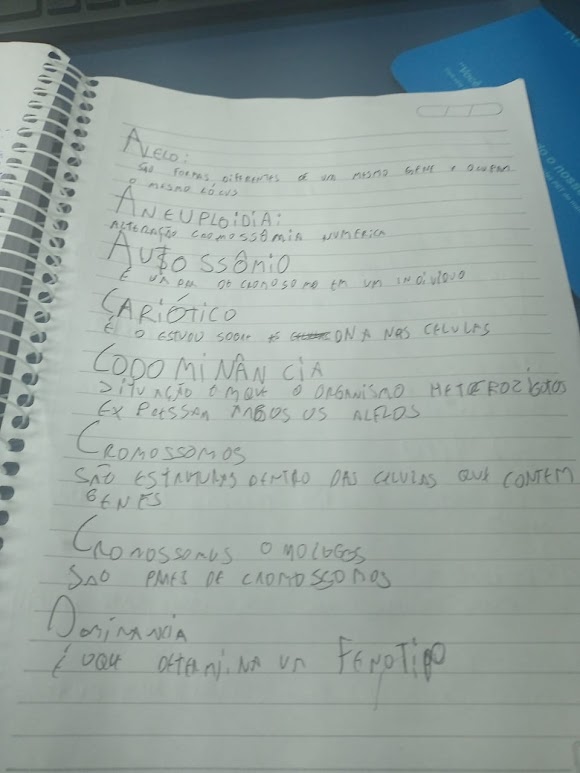 ALELO:
SÃO FORMAS DIFERENTES DE UM MESMO GENE E OCUPAM
O MESMO LÓCUS
ANEUPLOIDIA:
ALTERAÇÃO CROMOSSÔMIA NUMERICA
AUTOSSÔMIO
É UM PAR DE CROMOSOMO EM UM INDIVIDUO
CARIÓTICO
É O ESTUDO SOBRE DNA NAS CELULAS
CODOMINÂNCIA
SITUAÇÃO EM QUE O ORGANISMO HETEROZIGOTOS
EXPRESSAM AMBOS OS ALELOS
CROMOSSOMOS
SÃO ESTRUTURAS DENTRO DAS CELULAS QUE CONTEM
GENES
CROMOSSOMOS OMOLOGOS
SÃO PARES DE CROMOSSOMOS
DOMINANCIA
É OQUE DETERMINA UM FENOTIPO
"Você